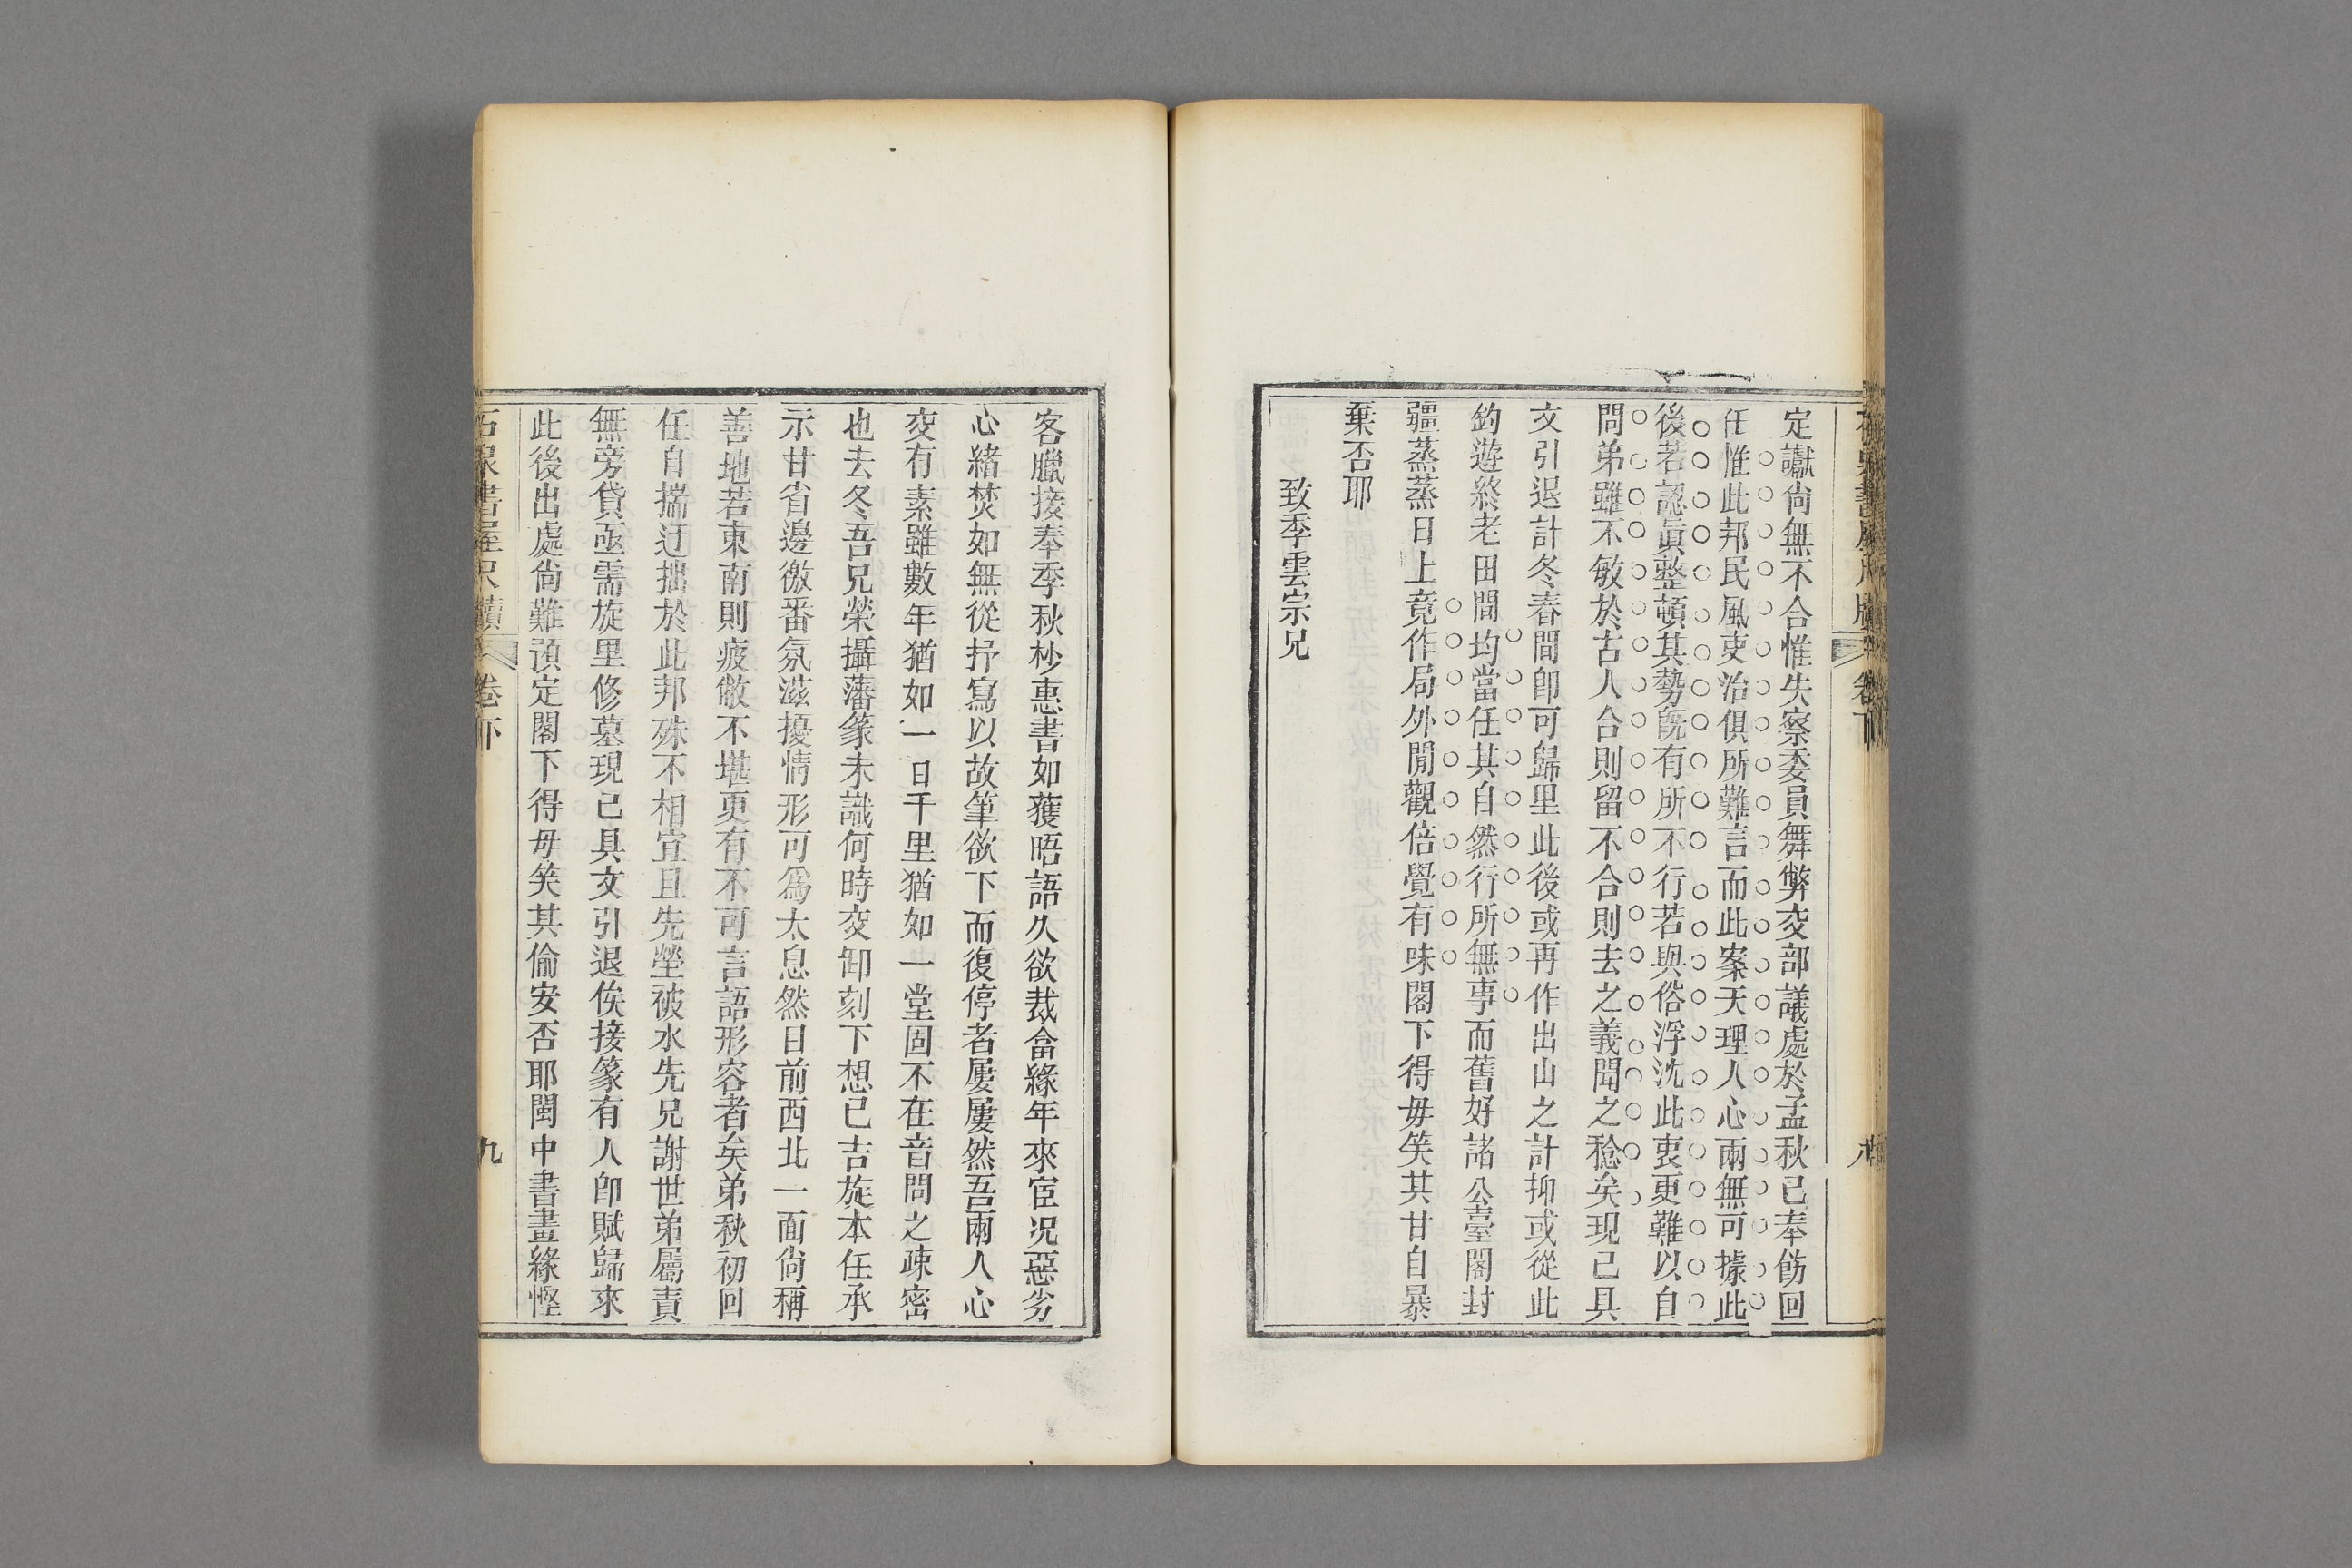 定讞尙無不合惟失察委員舞弊交部議處於孟秋已奉飭回
任惟此邦民風吏治俱所難言而此案天理人心兩無可據此
後若認眞整頓其勢旣有所不行若與俗浮沈此衷更難以自
問弟雖不敏於古人合則留不合則去之義聞之稔矣現已具
文引退計冬春間卽可歸里此後或再作出山之計抑或從此
釣遊終老田間均當任其自然行所無事而舊好諸公臺閣封
疆蒸蒸日上竟作局外閒觀倍覺有味閣下得毋笑其甘自暴
棄否耶
致季雲宗兄
客臘接奉季秋杪惠書如獲晤語久欲裁畣緣年來宦况惡劣
心緖焚如無從抒寫以故筆欲下而復停者屢屢然吾兩人心
交有素雖數年猶如一日千里猶如一堂固不在音問之疎密
也去冬吾兄榮攝藩篆未識何時交卸刻下想已吉旋本任承
示甘省邊徼番氛滋擾情形可爲太息然目前西北一面尙稱
善地若東南則疲敝不堪更有不可言語形容者矣弟秋初回
任自揣迂拙於此邦殊不相宜且先塋被水先兄謝世弟屬責
無旁貸亟需旋里修墓現已具文引退俟接篆有人卽賦歸來
此後出處尙難預定閣下得毋笑其偷安否耶閩中書畫緣慳
石泉書屋尺牘 卷下 九